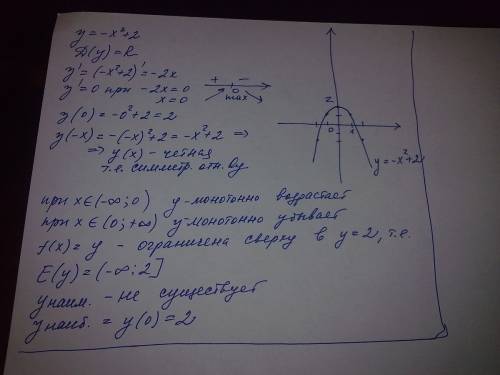 y = -x²+2
D(y) = R
y' = (-x²+2)' = -2x
y' = 0 при -2x = 0
x = 0
+ -
0
max
y(0) = -0²+2 = 2
y(-x) = -(-x)²+2 = -x²+2 ⇒
⇒ y(x) - четная
т.е. симметр. отн. Oy
2
0
1
y = -x²+2
при x∈(-∞; 0) y-монотонно возрастает
при x∈(0; +∞) y-монотонно убывает
f(x) = y - ограничена сверху в y = 2, т.е.
E(y) = (-∞; 2]
y наим. - не существует
y наиб. = y(0) = 2